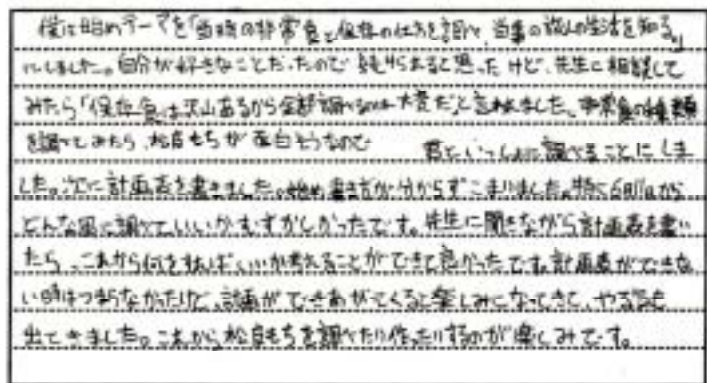 僕は始めテーマを「当時の非常食と保存の仕方を調べ、当事の藩の生活を知る。」
にしました。自分が好きなことだったので 決められると思ったけど、先生に相談して
みたら「保存食は沢山あるから全部調べるのは大変だ」と言われました。非常食の種類
を調べてみたら、松皮もちが面白そうなので 君といっしょに調べることにしま
した。次に計画表を書きました。始め書き方が分からずこまりました。特に6月11日から
どんな風に調べていいかむずかしかったです。先生に聞きながら計画表を書い
たら、これから何をすればいいか考えることができて良かったです。計画表ができな
い時はつまらなかったけど、計画ができあがってくると楽しみになってきて、やる気も
出てきました。これから松皮もちを調べたり作ったりするのが楽しみです。